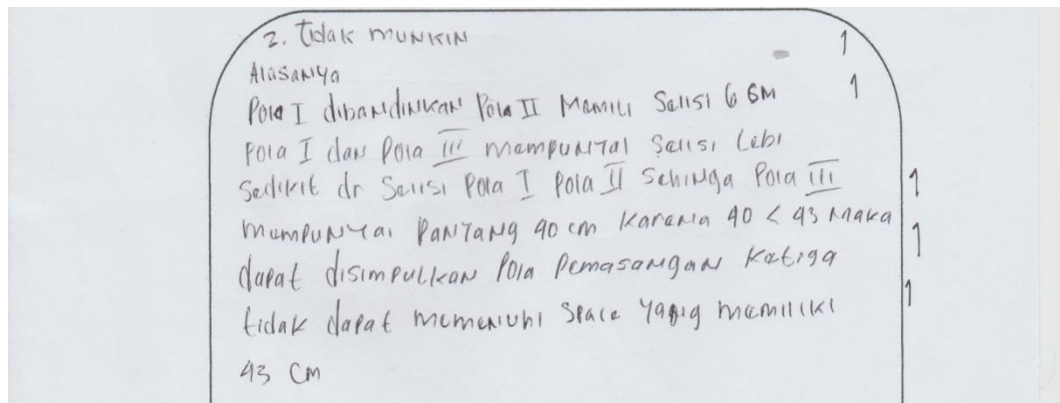 2. tidak MUNKIN 1
Alasanya
Pola I dibandinkan Pola II Memili Selisi 6 SM 1
Pola I dan Pola III mempunyai Selisi Lebi
Sedikit dr Selisi Pola I Pola II Sehinga Pola III 1
mempunyai Panyang 40 cm Karena 40 < 43 Maka
dapat disimpulkan Pola Pemasangan Ketiga 1
tidak dapat memenuhi Space yang memiliki 1
43 CM